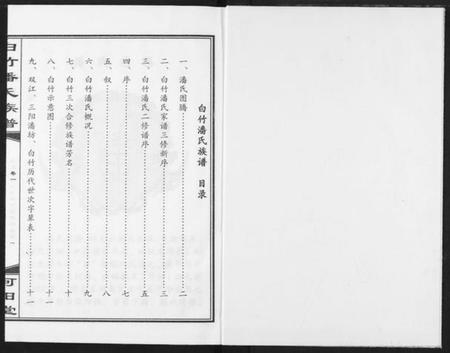 白竹潘氏族谱 目录
一、潘氏图腾……二
二、白竹潘氏家谱三修新序……三
三、白竹潘氏二修谱序……五
四、序……七
五、叙……八
六、白竹潘氏概况……九
七、白竹三次合修族谱芳名……十
八、白竹示意图……十一
九、双江、三阳潘坊、白竹历代世次字辈表……十一
白竹潘氏族谱
卷一
一
可田堂